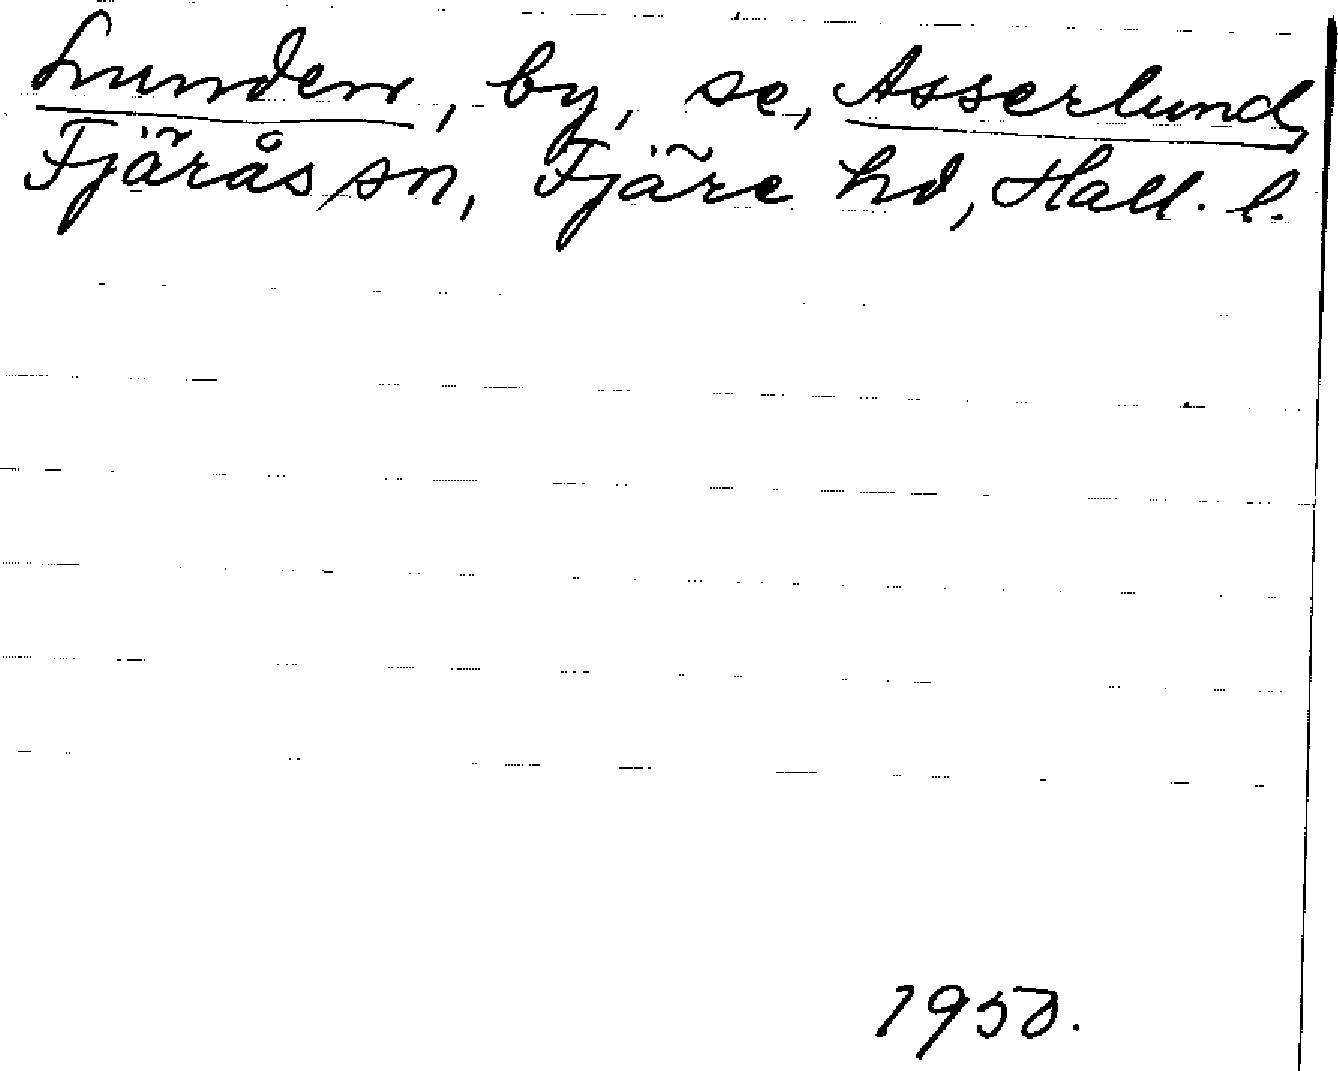 Lunden, by, se, Asserlund,
Fjärås sn, Fjäre hd, Hall. l.
1950.